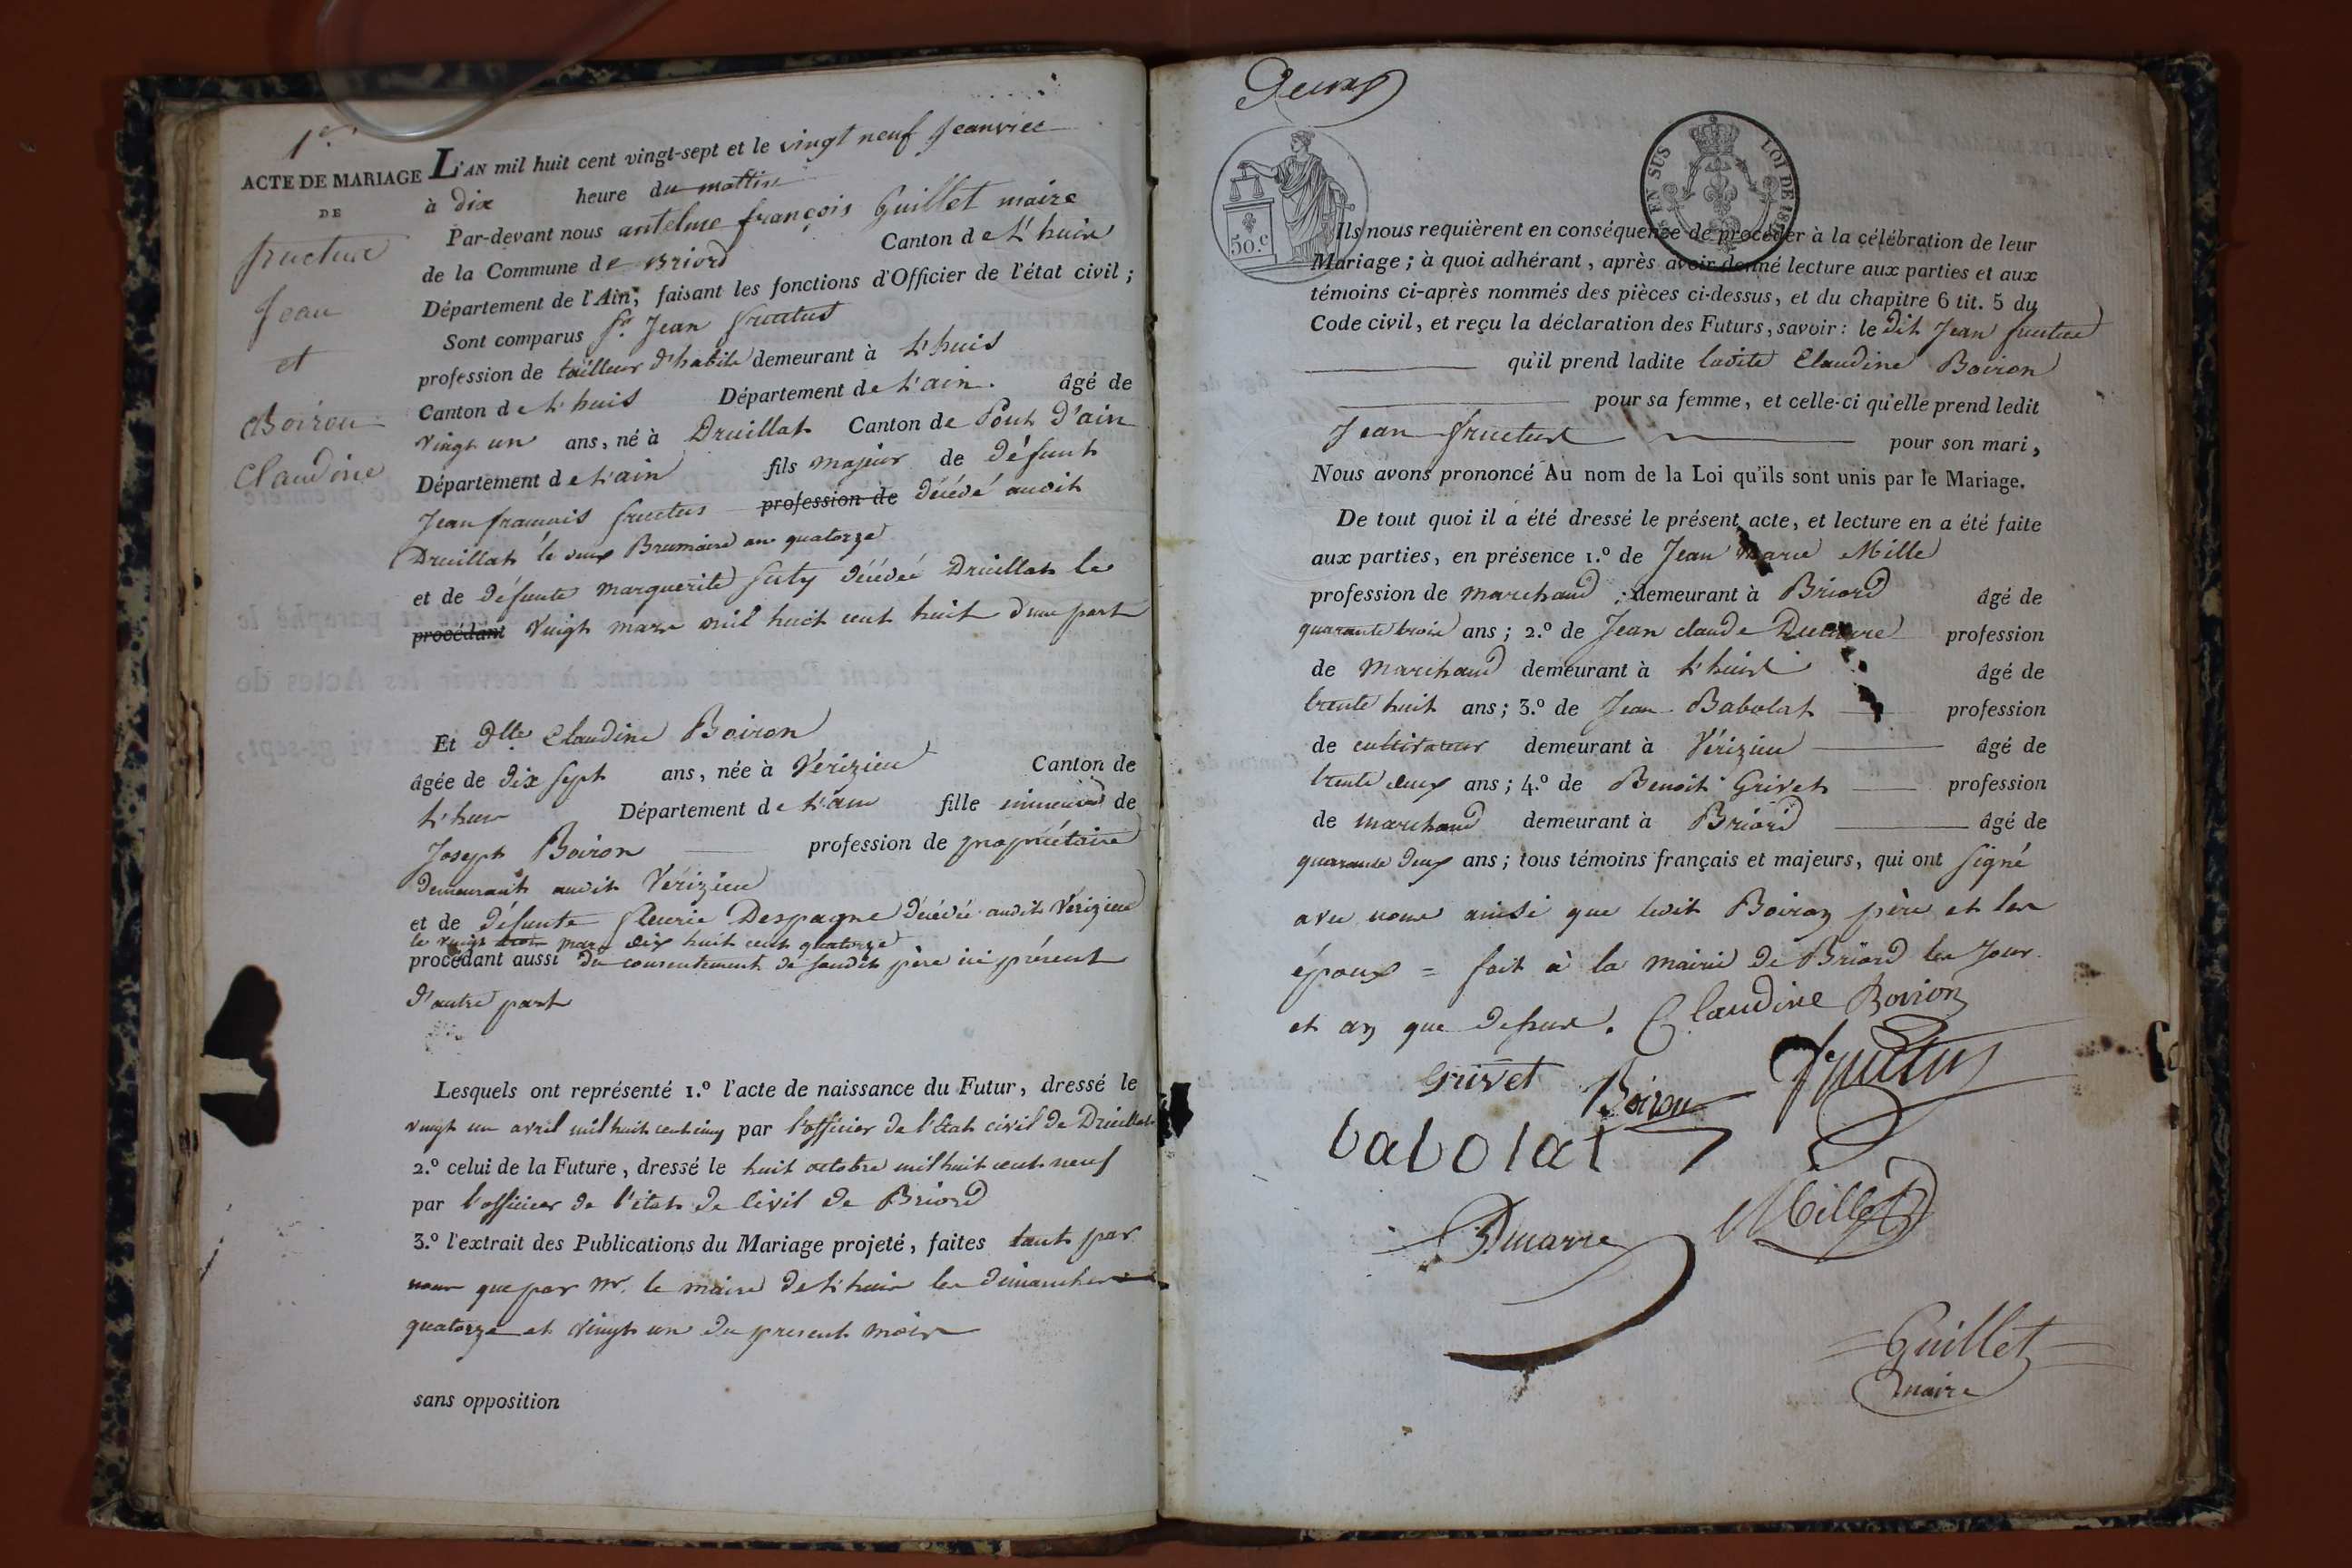 1er
ACTE DE MARIAGE
DE
fructus
Jean
et
Boiron
Claudine
L'AN mil huit cent vingt-sept et le vingt neuf Jeanvier
à dix heure du mattin
Par-devant nous antelme françois Guillet maire
de la Commune de Briord Canton de L'huis
Département de l'Ain, faisant les fonctions d'Officier de l'état civil ;
Sont comparus Sr. Jean fructus
profession de tailleur d'habits demeurant à L'huis
Canton de L'huis Département de L'ain. âgé de
vingt un ans, né à Druillat Canton de Pont D'ain
Département de L'ain fils majeur de défunt
Jean francois fructus profession de décédé audit
Druillat le deux Brumaire an quatorze
et de défunte marguerite décédée Druillat le
procédant vingt mars mil huit cent huit d'une part
Et dlle. Claudine Boiron
âgée de dix sept ans, née à Vérizieu Canton de
L'huis Département de L'ain fille mineure de
Joseph Boiron profession de propriétaire
demeurant audit Vérizieu
et de défunte fleurie Despagne décédée audit Vérizieu
le vingt mars dix huit cent quatorze
procédant aussi du consentement de sondit père ici présent
d'autre part
Lesquels ont représenté 1.º l'acte de naissance du Futur, dressé le
vingt un avril mil huit cent cinq par l'officier de l'État civil de Druillat
2.º celui de la Future, dressé le huit octobre mil huit cent neuf
par l'officier de l'état de Civil de Briord
3.º l'extrait des Publications du Mariage projeté, faites tant par
nous que par Mr. le maire de L'huis les dimanches
quatorze et vingt un du present mois
sans opposition
Deux
50.c
EN SUS
LOI DE
Ils nous requièrent en conséquence de procéder à la célébration de leur
Mariage ; à quoi adhérant, après avoir donné lecture aux parties et aux
témoins ci-après nommés des pièces ci-dessus, et du chapitre 6 tit. 5 du
Code civil, et reçu la déclaration des Futurs, savoir : le dit Jean fructus
qu'il prend ladite ladite Claudine Boiron
pour sa femme, et celle-ci qu'elle prend ledit
Jean fructus pour son mari,
Nous avons prononcé Au nom de la Loi qu'ils sont unis par le Mariage.
De tout quoi il a été dressé le présent acte, et lecture en a été faite
aux parties, en présence 1.º de Jean Marie Mille
profession de marchand ; demeurant à Briord âgé de
quarante trois ans ; 2.º de Jean claude Ducarre profession
de Marchand demeurant à L'huis âgé de
trente huit ans ; 3.º de Jean Babolat profession
de cultivateur demeurant à Vérizieu âgé de
trente deux ans ; 4.º de Benoit Grivet profession
de marchand demeurant à Briord âgé de
quarante deux ans ; tous témoins français et majeurs, qui ont signé
avec nous ainsi que ledit Boiron père et les
époux = fait à la mairie de Briord les Jour
et an que dessus. Claudine Boiron
Grivet Boiron fructus
babolat
Ducarre Millet
Guillet
maire